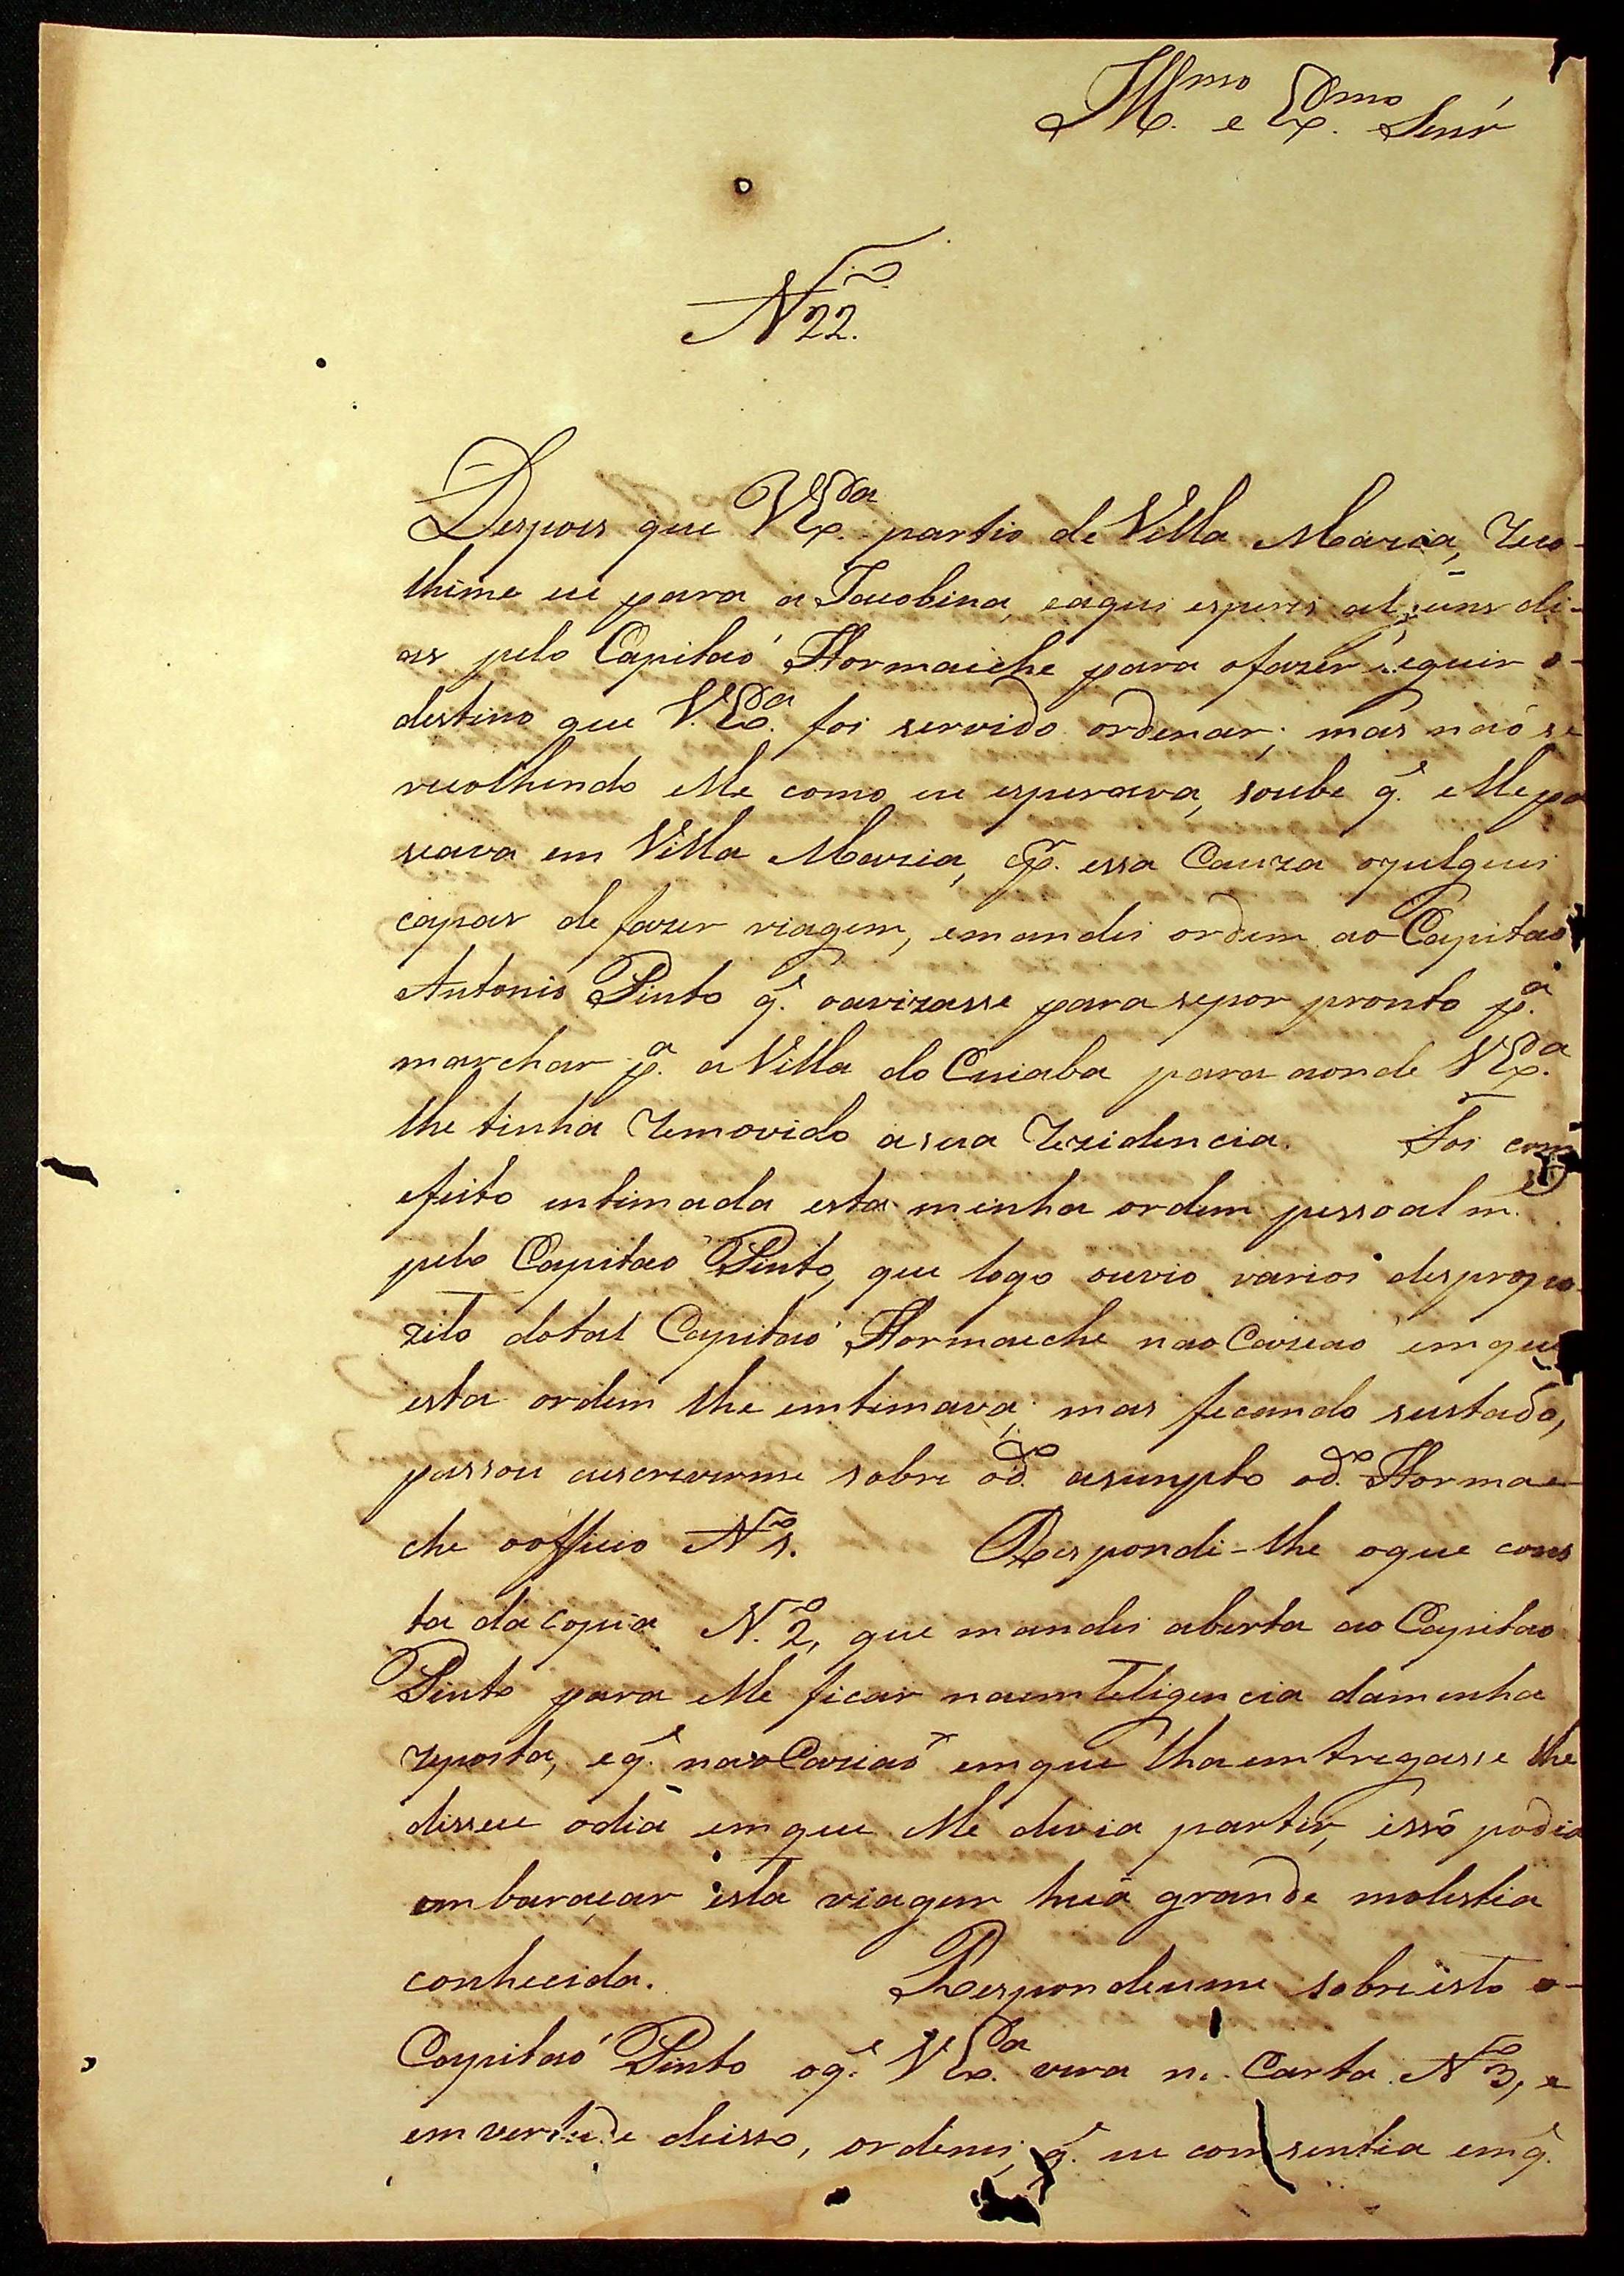 Ill.mo e Ex.mo Senr
N.o 22.
Despois que V Ex.cia partio de Villa Maria, reco-
lhime eu para a Jacobina, eaqui esperei alguns di-
as pelo Capitaó Hormaiche para ofazer seguir o-
destino que V. Ex.cia foi servido ordenar; mas naó se
recolhendo elle como eu esperava, soube q.e elle pa
seava em Villa Maria, e p.r essa Cauza ojulguei
capas de fazer viagem, emandei ordem ao Capitao
Antonio Pinto q.e oavizasse para sepor pronto p.a
marchar p.a a Villa do Cuiaba para aonde V Ex.cia
lhe tinha removido asua rezidencia. Foi com
efeito intimada esta minha ordem pessoal m.e
pelo Capitao Pinto, que logo ouvio varios despropo
zito dotal Capitaó Hormaeche naocaziao emque
esta ordem lhe emtimava; mas ficando sustado,
passou aescreverme sobre o d.o asumpto o d.o Hormae
che oofficio N.o 1. Respondi-lhe oque cons
ta da copia N.o 2, que mandei aberta ao Capitao
Pinto para elle ficar naemteligencia daminha
reposta, eq.e naocaziaó emque lhaemtregasse lhe
disseçe odia emque elle devia partir, esó podia
embaraçar esta viagem huá grande molestia
conhecida. Respondeume sobre isto o-
Capitaó Pinto oq.e V Ex.a vera n. Carta N.o 3, e
em vertude disso, ordenei, q.e eu comsentia emq.e